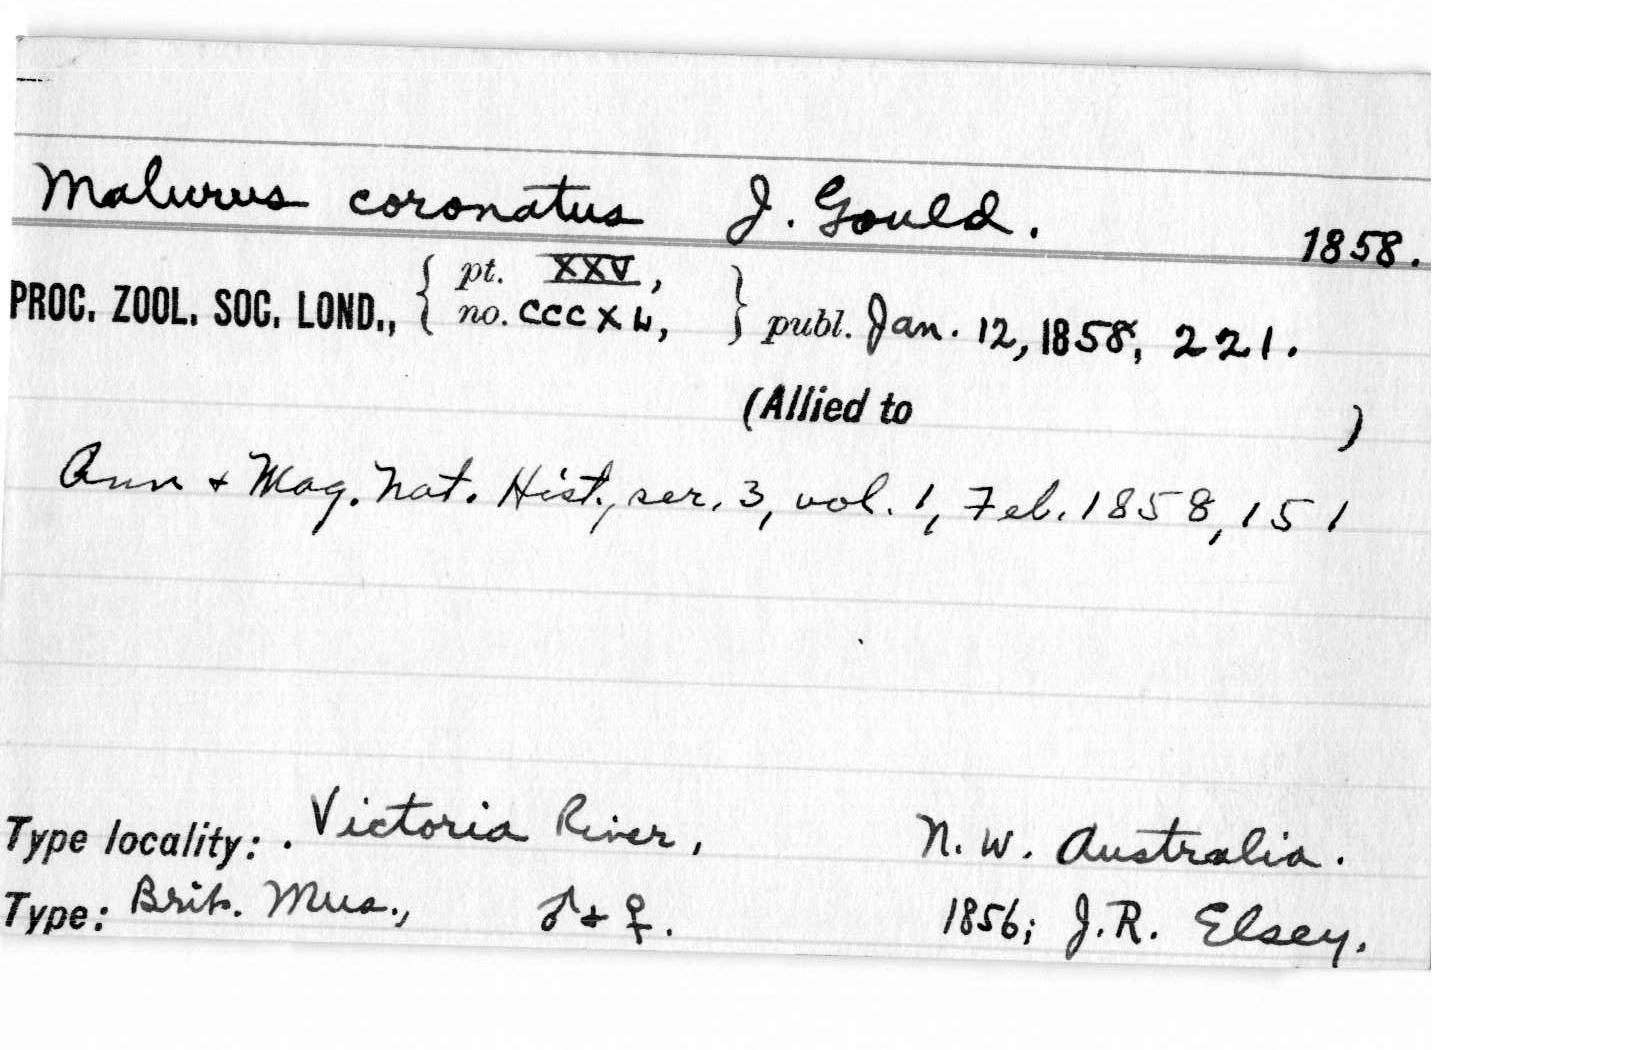 Malurus coronatus J. Gould. 1858.
PROC. ZOOL. SOC. LOND., { pt. XXV, no. CCCXL, } publ. Jan. 12, 1858, 221.
(Allied to )
Ann + Mag. Nat. Hist., ser. 3, vol. 1, Feb. 1858, 151
Type locality: . Victoria River, N. W. Australia.
Type: Brit. Mus., ♂ + ♀. 1856; J. R. Elsey.